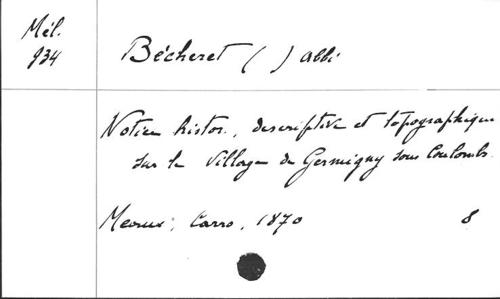 Mél.
934
Bécheret ( ) abbé
Notice histor., descriptive et topographique
sur le village de Germigny sous Coulombs.
Meaux, Carro, 1870 8